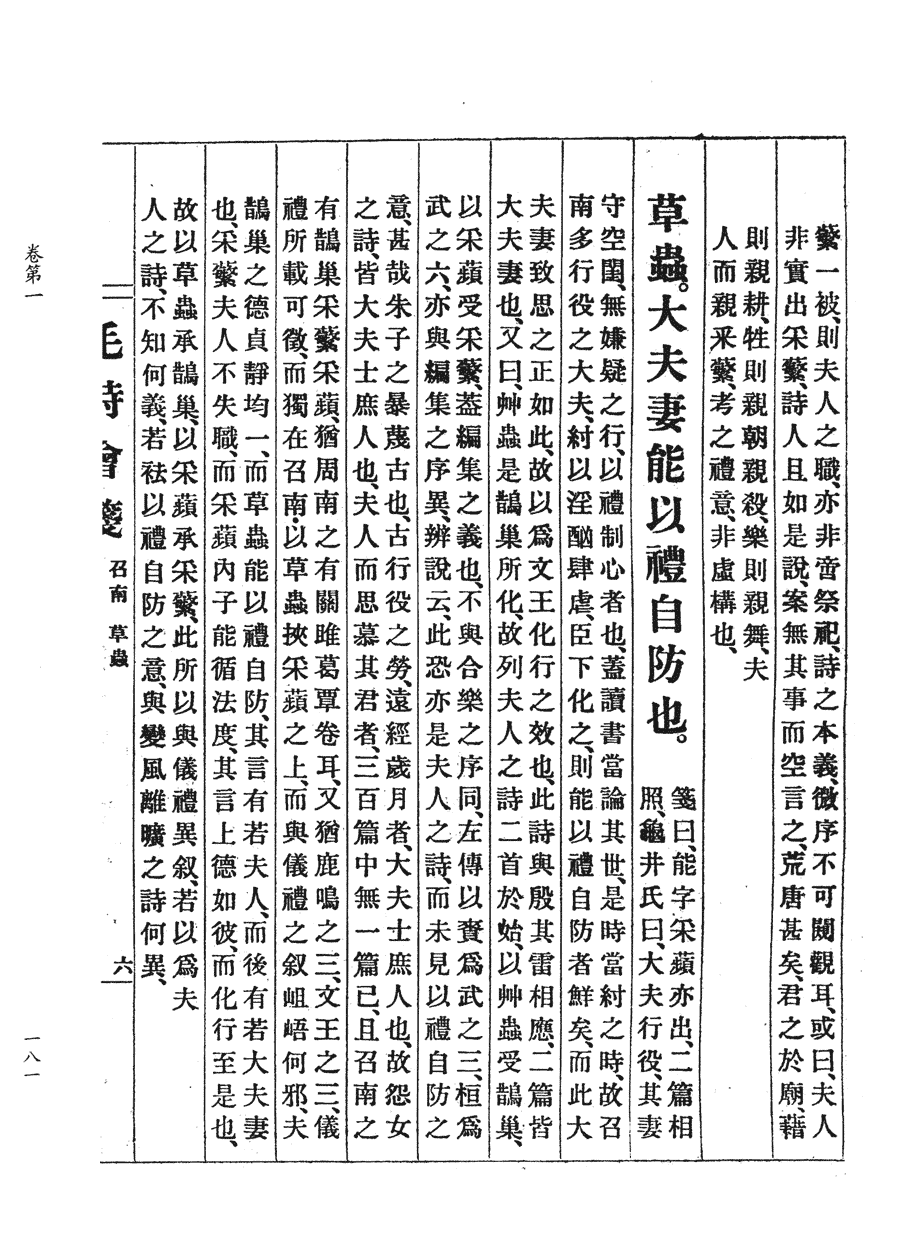 蘩一被、則夫人之職、亦非啻祭祀、詩之本義、微序不可闚觀耳、或曰、夫人
非實出采蘩、詩人且如是說、案無其事而空言之、荒唐甚矣、君之於廟、藉
則親耕、牲則親朝親殺、樂則親舞、夫
人而親釆蘩、考之禮意、非虛構也、
草蟲。大夫妻能以禮自防也。
箋曰、能字采蘋亦出、二篇相
照、龜井氏曰、大夫行役、其妻
守空閨、無嫌疑之行、以禮制心者也、蓋讀書當論其世、是時當紂之時、故召
南多行役之大夫、紂以淫酗肆虐、臣下化之、則能以禮自防者鮮矣、而此大
夫妻致思之正如此、故以爲文王化行之效也、此詩與殷其雷相應、二篇皆
大夫妻也、又曰、艸蟲是鵲巢所化、故列夫人之詩二首於始、以艸蟲受鵲巢、
以采蘋受采蘩、葢編集之義也、不與合樂之序同、左傳以賚爲武之三、桓爲
武之六、亦與編集之序異、辨說云、此恐亦是夫人之詩、而未見以禮自防之
意、甚哉朱子之暴蔑古也、古行役之勞、遠經歲月者、大夫士庶人也、故怨女
之詩、皆大夫士庶人也、夫人而思慕其君者、三百篇中無一篇已、且召南之
有鵲巢采蘩采蘋、猶周南之有關雎葛覃卷耳、又猶鹿鳴之三、文王之三、儀
禮所載可徵、而獨在召南、以草蟲挾采蘋之上、而與儀禮之叙岨峿何邪、夫
鵲巢之德貞靜均一、而草蟲能以禮自防、其言有若夫人、而後有若大夫妻
也、采蘩夫人不失職、而采蘋內子能循法度、其言上德如彼、而化行至是也、
故以草蟲承鵲巢、以采蘋承采蘩、此所以與儀禮異叙、若以爲夫
人之詩、不知何義、若祛以禮自防之意、與變風離曠之詩何異、
毛詩會箋 召南 草蟲 六
卷第一
一八一